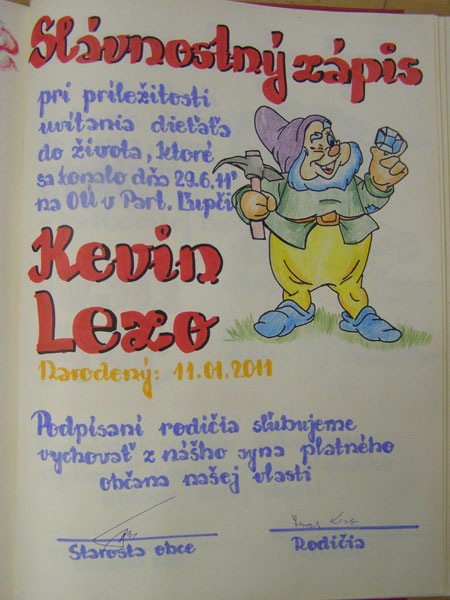 Slávnostný zápis
pri príležitosti
uvítania dieťaťa
do života, ktoré
sa konalo dňa 29.6.11'
na OÚ v Part. Ľupči
Kevin
Lexo
Narodený: 11.01.2011
Podpísaní rodičia sľubujeme
vychovať z nášho syna platného
občana našej vlasti
Starosta obce
Rodičia